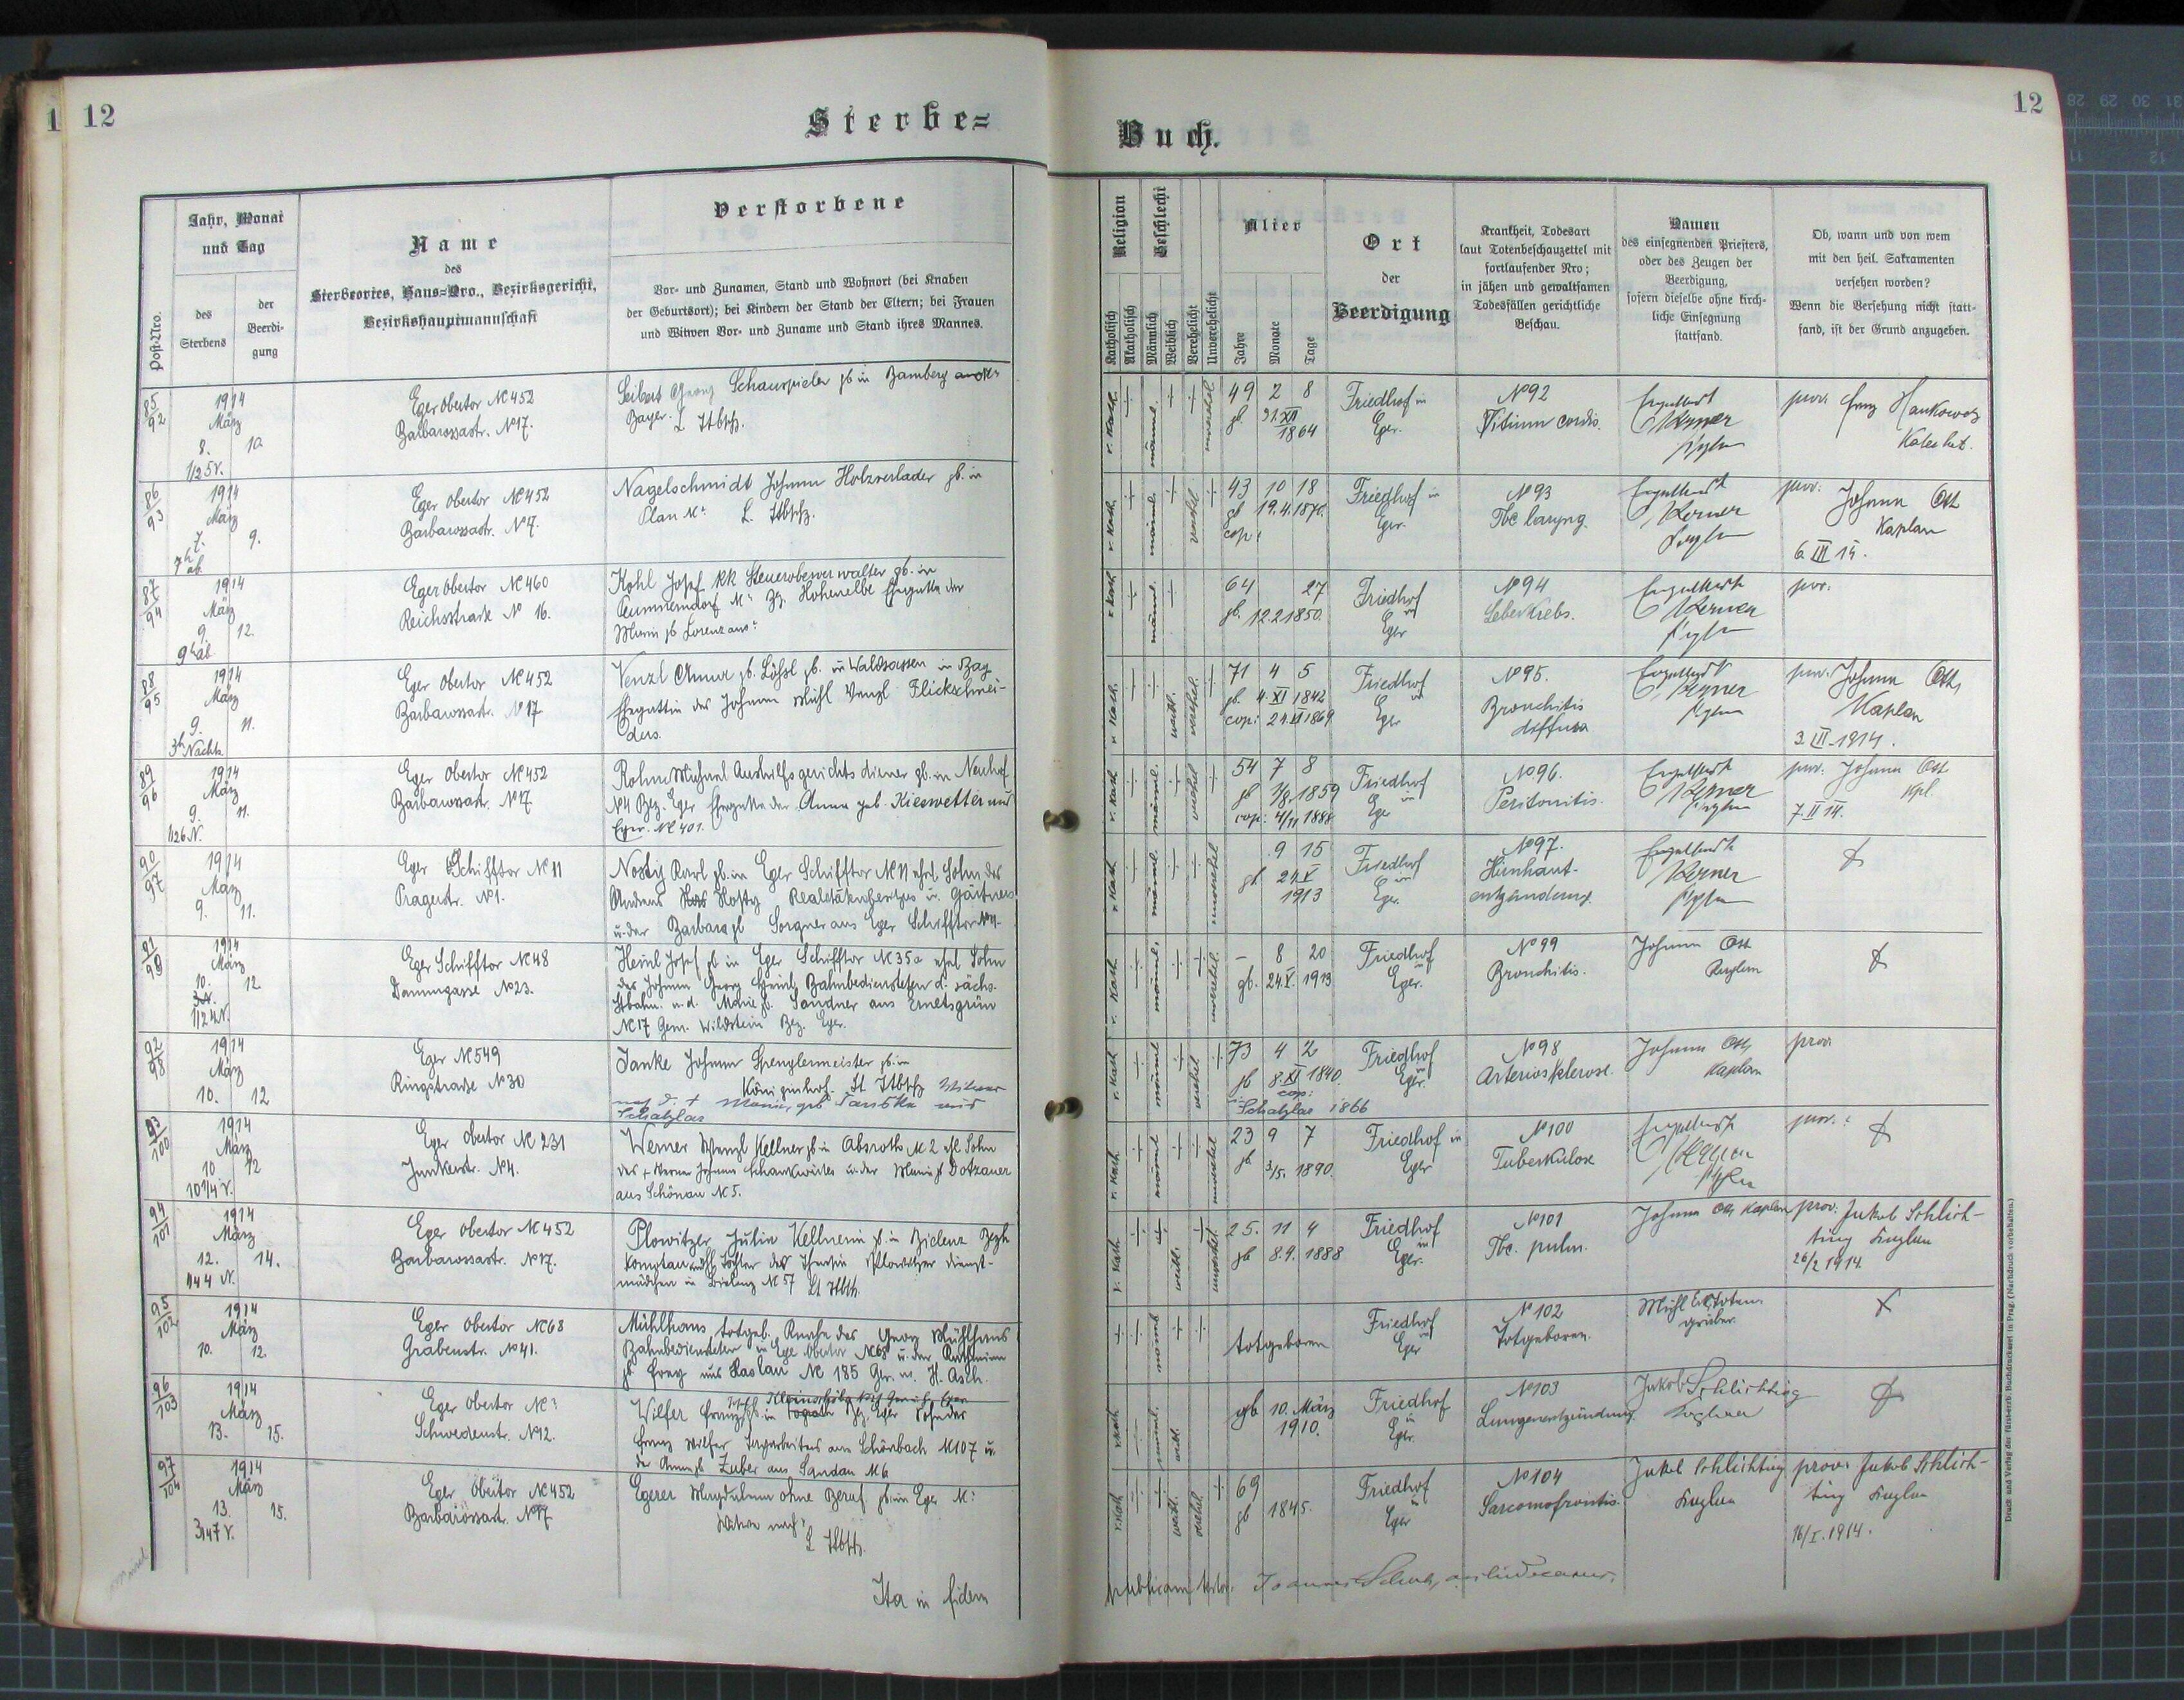 1 12
Sterbe=
Buch.
12
Post-Nro.
Jahr, Monat
und Tag
des
Sterbens
der
Beerdi-
gung
Name
des
Sterbeortes, Haus=Nro., Bezirksgericht,
Bezirkshauptmannschaft
Verstorbene
Vor- und Zunamen, Stand und Wohnort (bei Knaben
der Geburtsort); bei Kindern der Stand der Eltern; bei Frauen
und Witwen Vor- und Zuname und Stand ihres Mannes.
Religion
Katholisch
Akatholisch
Geschlecht
Männlich
Weiblich
Verehelicht
Unverehelicht
Alter
Jahre
Monate
Tage
Ort
der
Beerdigung
Krankheit, Todesart
laut Totenbeschauzettel mit
fortlaufender Nro;
in jähen und gewaltsamen
Todesfällen gerichtliche
Beschau.
Namen
des einsegnenden Priesters,
oder des Zeugen der
Beerdigung,
sofern dieselbe ohne kirch-
liche Einsegnung
stattfand.
Ob, wann und von wem
mit den heil. Sakramenten
versehen worden?
Wenn die Versehung nicht statt-
fand, ist der Grund anzugeben.
85/92
1914
März
8. 10
1/2 5 V.
Eger Obertor № 452
Barbarossastr. № 17.
Seibert Georg Schauspieler gb in Bamberg
Bayer. L Stbschz.
r. Kath. männl. unverehel.
49 2 8
gb 31. XII
1864
Friedhof in
Eger.
№ 92
Vitium cordis.
Engelbert
Kerner
prov. Franz
Katechet.
86/93
1914
März
7. 9.
7h ab.
Eger Obertor № 452
Barbarossastr. № 17.
Nagelschmidt Johann Holzverlader gb. in
Plan №: L. Stbschz.
r. Kath. männl. verehel
43 10 18
gb 19.4.1870.
cop:
Friedhof in
Eger.
№ 93
Tbc laryng.
Engelbert
Kerner
prov. Johann Ott
Kaplan
6. III 14.
87/94
1914
März
9. 12.
9h ab
Eger Obertor № 460
Reichsstrasse № 16.
Kohl Josef KK Steueroberverwalter gb. in
№: Bz. Hohenelbe Ehegatte der
Maria gb Lorenz aus:
r. Kath männl.
64 27
gb. 12 2 1850.
Friedhof
in
Eger
№ 94
Leberkrebs.
Engelbert
Kerner
prov.
88/95
1914
März
9. 11.
3h Nachts.
Eger Obertor № 452
Barbarossastr. № 17
Venzl Anna gb. Lössl gb. in Waldsassen in Bay
Ehegattin des Johann Venzl Flickschnei-
ders.
r. Kath. weibl. verehel.
71 4 5
gb. 4. XI 1842
cop: 24. 1869
Friedhof
in
Eger
№ 95.
Bronchitis
diffusa
Engelbert
Kerner
prov. Johann Ott,
Kaplan
3. III. 1914.
89/96
1914
März
9. 11.
1/2 6 N.
Eger Obertor № 452
Barbarossastr. № 17
Rohm Michael Aushilfsgerichtsdiener gb. in Neuhof
№ 4 Bez. Eger Ehegatte der Anna geb. Kieswetter aus
Eger. № 401.
r. Kath männl. verehel
54 7 8
gb 1/8. 1859
cop: 4/11 1888
Friedhof
in
Eger
№ 96.
Peritonitis.
Engelbert
Kerner
prov: Johann Ott
Kpl.
7. II 14.
90/97
1914
März
9. 11.
Eger Schifftor № 11
Pragerstr. № 1.
Nosty Karl gb. in Eger Schifftor № 11 ehel Sohn des
Andreas Nosty Realitätenbesitzers u. Gärtners
u. der Barbara gb Sorgner aus Eger Schifftor № 4.
r. Kath. männl. unverehel
9 15
gb 24. V
1913
Friedhof
in
Eger.
№ 97.
Hirnhaut-
entzündung.
Engelbert
Kerner
91/99
1914
März
10. 12
1/2 4 N.
Eger Schifftor № 48
Dammgasse № 23.
Heinl Josef gb in Eger Schifftor № 35a ehel. Sohn
des Johann Georg Heinl Bahnbediensteten d. sächs.
Stbahn. u. d. Marie gb. Sandner aus Ernetsgrün
№ 17 Gem. Wildstein Bez. Eger.
r. Kath männl. unverehel.
- 8 20
gb. 24. V. 1913
Friedhof
Eger.
№ 99
Bronchitis.
Johann Ott
Kaplan
92/98
1914
März
10. 12
Eger № 549
Ringstraße № 30
Janke Johann Spenglermeister gb. in
Königinhof. Lt Stbschz Witwer
nach d. † Maria, geb. aus
Schatzlar
r. Kath männl verehel
73 4 2
gb 8. XI 1840.
cop:
Schatzlar 1866
Friedhof
Eger.
№ 98
Arteriosklerose.
Johann Ott,
Kaplan
prov.
93/100
1914
März
10 12
10 1/4 V.
Eger Obertor № 231
Junkerstr. № 4.
Werner Wenzl Kellner gb in Absroth № 2 ehl Sohn
des † Werner Johann Schankwirtes u. der Maria gb Dotzauer
aus Schönau № 5.
r. Kath. männl unverehel
23 9 7
gb. 3/5. 1890.
Friedhof in
Eger
№ 100
Tuberkulose
Engelbert
Kerner
prov.:
94/101
1914
März
12. 14.
1/4 4 N.
Eger Obertor № 452
Barbarossastr. № 17.
Plowitzer Julia Kellnerin gb. in Bielenz Bezh
Komotau unehl. Tochter der Theresia Plowitzer Dienst-
mädchen in Bielenz № 57 Lt Stbth.
r. Kath. weibl. unverehel
25. 11 4
gb 8.9. 1888
Friedhof
in
Eger.
№ 101
Tbc. pulm.
Johann Ott Kaplan
prov. Jakob Schlich-
ting Kaplan
26/2 1914.
95/102
1914
März
10. 12.
Eger Obertor № 68
Grabenstr. № 41.
Mühlhans totgeb. Knabe des Georg Mühlhans
Bahnbediensteten in Eger Obertor № 68 u. der
gb Frey aus Haslau № 185 Ger. u. H. Asch.
männl
totgeboren
Friedhof
in
Eger
№ 102
Totgeboren.
Mühl Toten-
gräber.
96/103
1914
März
13. 15.
Eger Obertor №:
Schwedenstr. № 12.
Wilfer Franz gb. in Bz. Eger Sohn des
Franz Wilfer aus Schönbach № 107 u.
der Anna gb Zuber aus Sandau № 6
r. Kath männl.
gb 10. März
1910.
Friedhof
in
Eger.
№ 103
Lungenentzündung.
Jakob Schlichting
Kaplan
97/104
1914
März
13. 15.
3/4 7 V.
Eger Obertor № 452
Barbarossastr. № 17
Egerer Magdalena ohne Beruf gb. in Eger №:
Witwe nach:
L Stbschz.
r. Kath weibl. verehel
69
gb 1845.
Friedhof
in
Eger
№ 104
Sarcoma frontis.
Jakob Schlichting
Kaplan
prov. Jakob Schlich-
ting Kaplan
16/I. 1914.
Ita in fidem
publicam testor: Joannes
Druck und Verlag der fürsterzb. Buchdruckerei in Prag. (Nachdruck vorbehalten.)